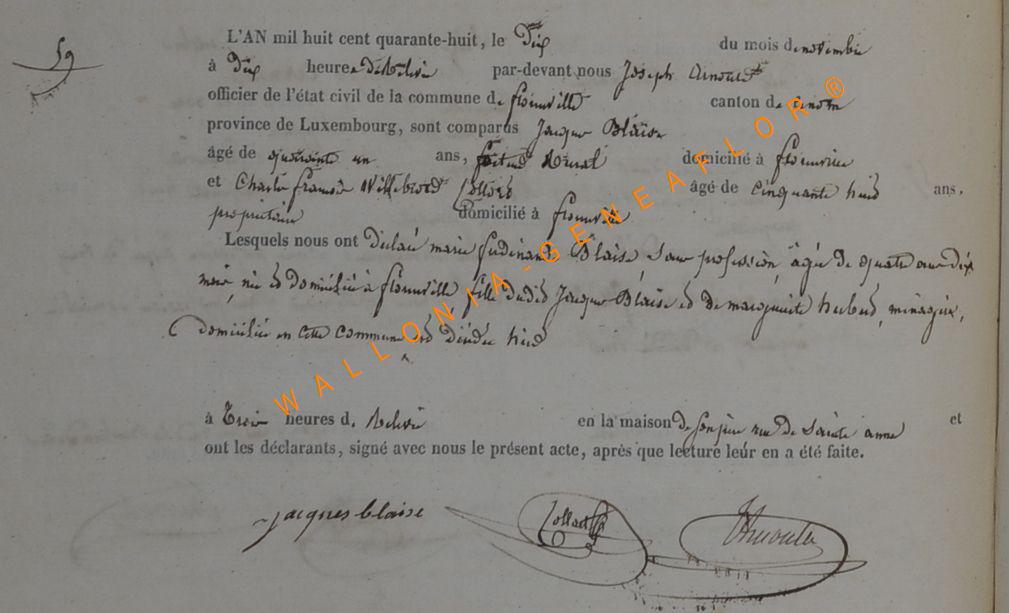 59
L'AN mil huit cent quarante-huit, le Dix du mois de novembre
à Dix heures du par-devant nous Joseph Arnould
officier de l'état civil de la commune de florenville canton de
province de Luxembourg, sont comparus Jacques Blaise
âgé de quarante un ans, domicilié à florenville
et Charles françois Willebrord Collard âgé de cinquante huit ans,
propriétaire domicilié à florenville
Lesquels nous ont déclaré marie ferdinande Blaise Sans profession âgée de quatre ans dix
mois, née et domiciliée à florenville, fille dudit Jacques Blaise et de marguerite hubert, ménagère,
domiciliée en cette commune est décédée hier
à trois heures d. en la maison de son père rue de Sainte anne et
ont les déclarants, signé avec nous le présent acte, après que lecture leur en a été faite.
jacques blaise Collard Arnould
WALLONIA-GENEAFLOR®